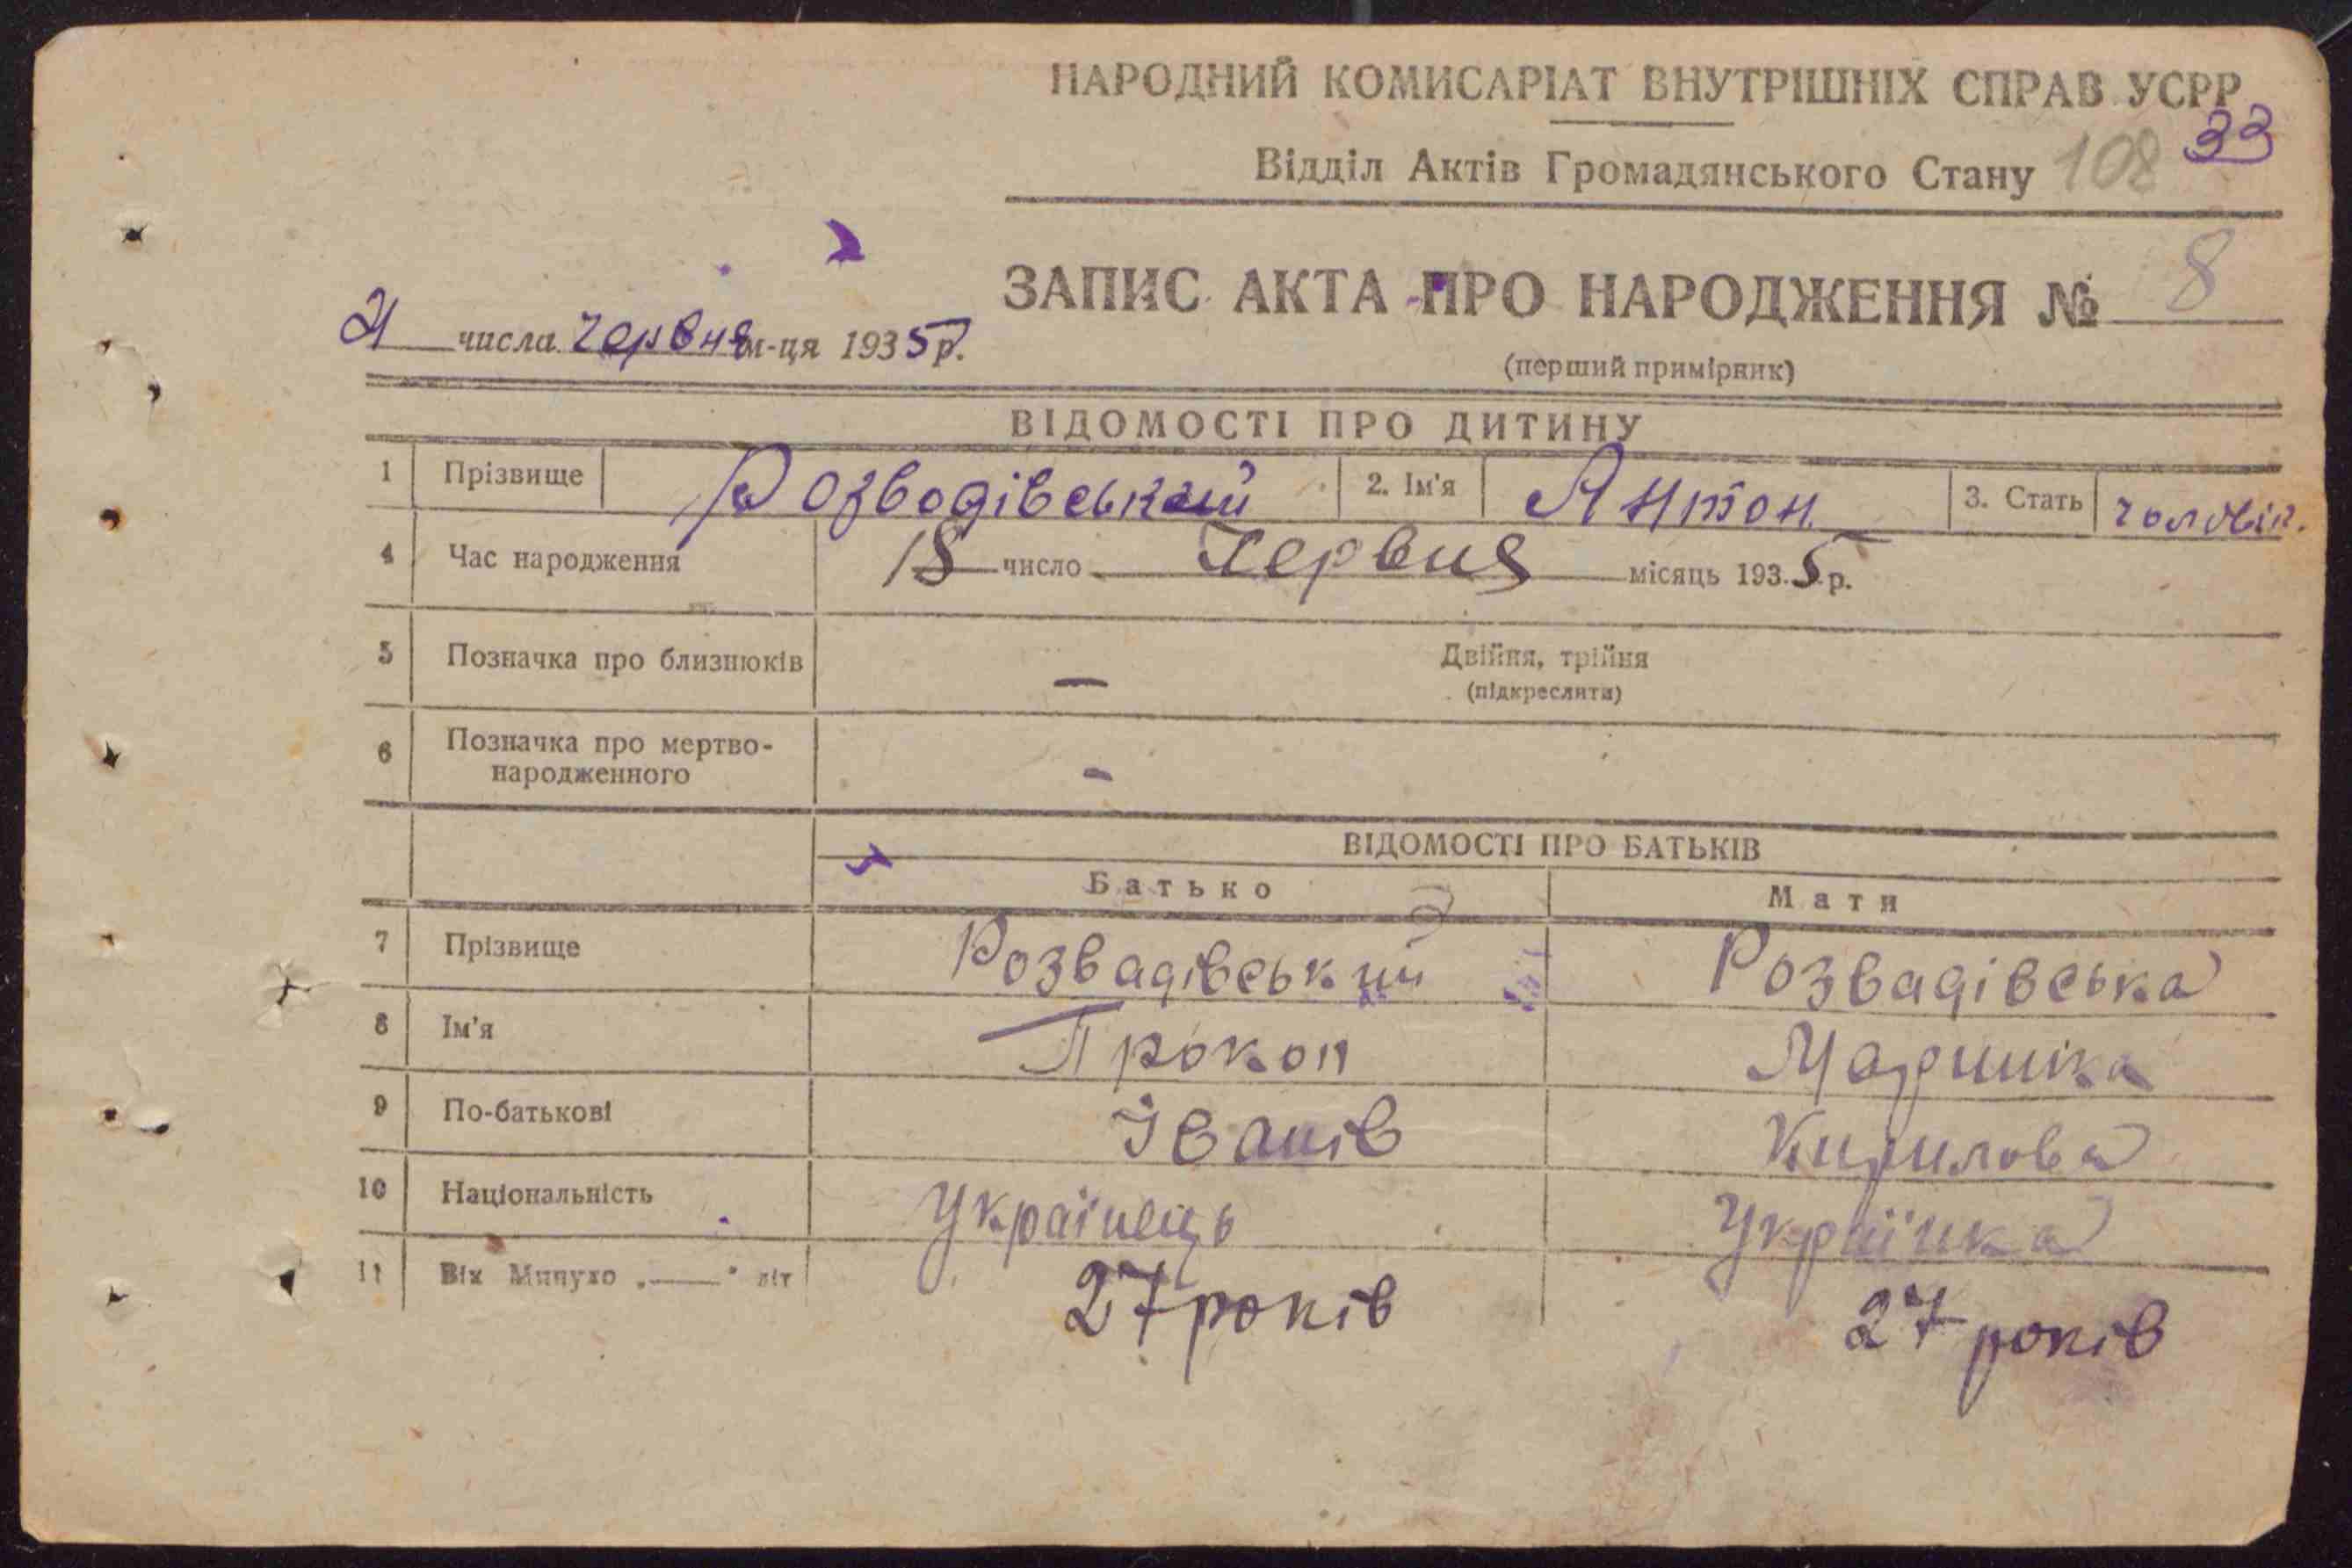 НАРОДНИЙ КОМИСАРІАТ ВНУТРІШНІХ СПРАВ УСРР
33
Відділ Актів Громадянського Стану 108
ЗАПИС АКТА ПРО НАРОДЖЕННЯ № 8
21 числа червня м-ця 1935 р.
(перший примірник)
ВІДОМОСТІ ПРО ДИТИНУ
1 Прізвище Розводівський 2. Ім'я Антон 3. Стать чоловіч.
4 Час народження 18 число Червня місяць 1935 р.
5 Позначка про близнюків — Двійня, трійня
(підкреслити)
6 Позначка про мертво-
народженного -
ВІДОМОСТІ ПРО БАТЬКІВ
Батько Мати
7 Прізвище Розвадівський Розвадівська
8 Ім'я Прокоп
9 По-батькові Іванів Кирилова
10 Національність Українець Українка
11 Вік Минуло „—" літ 27 років 27 років